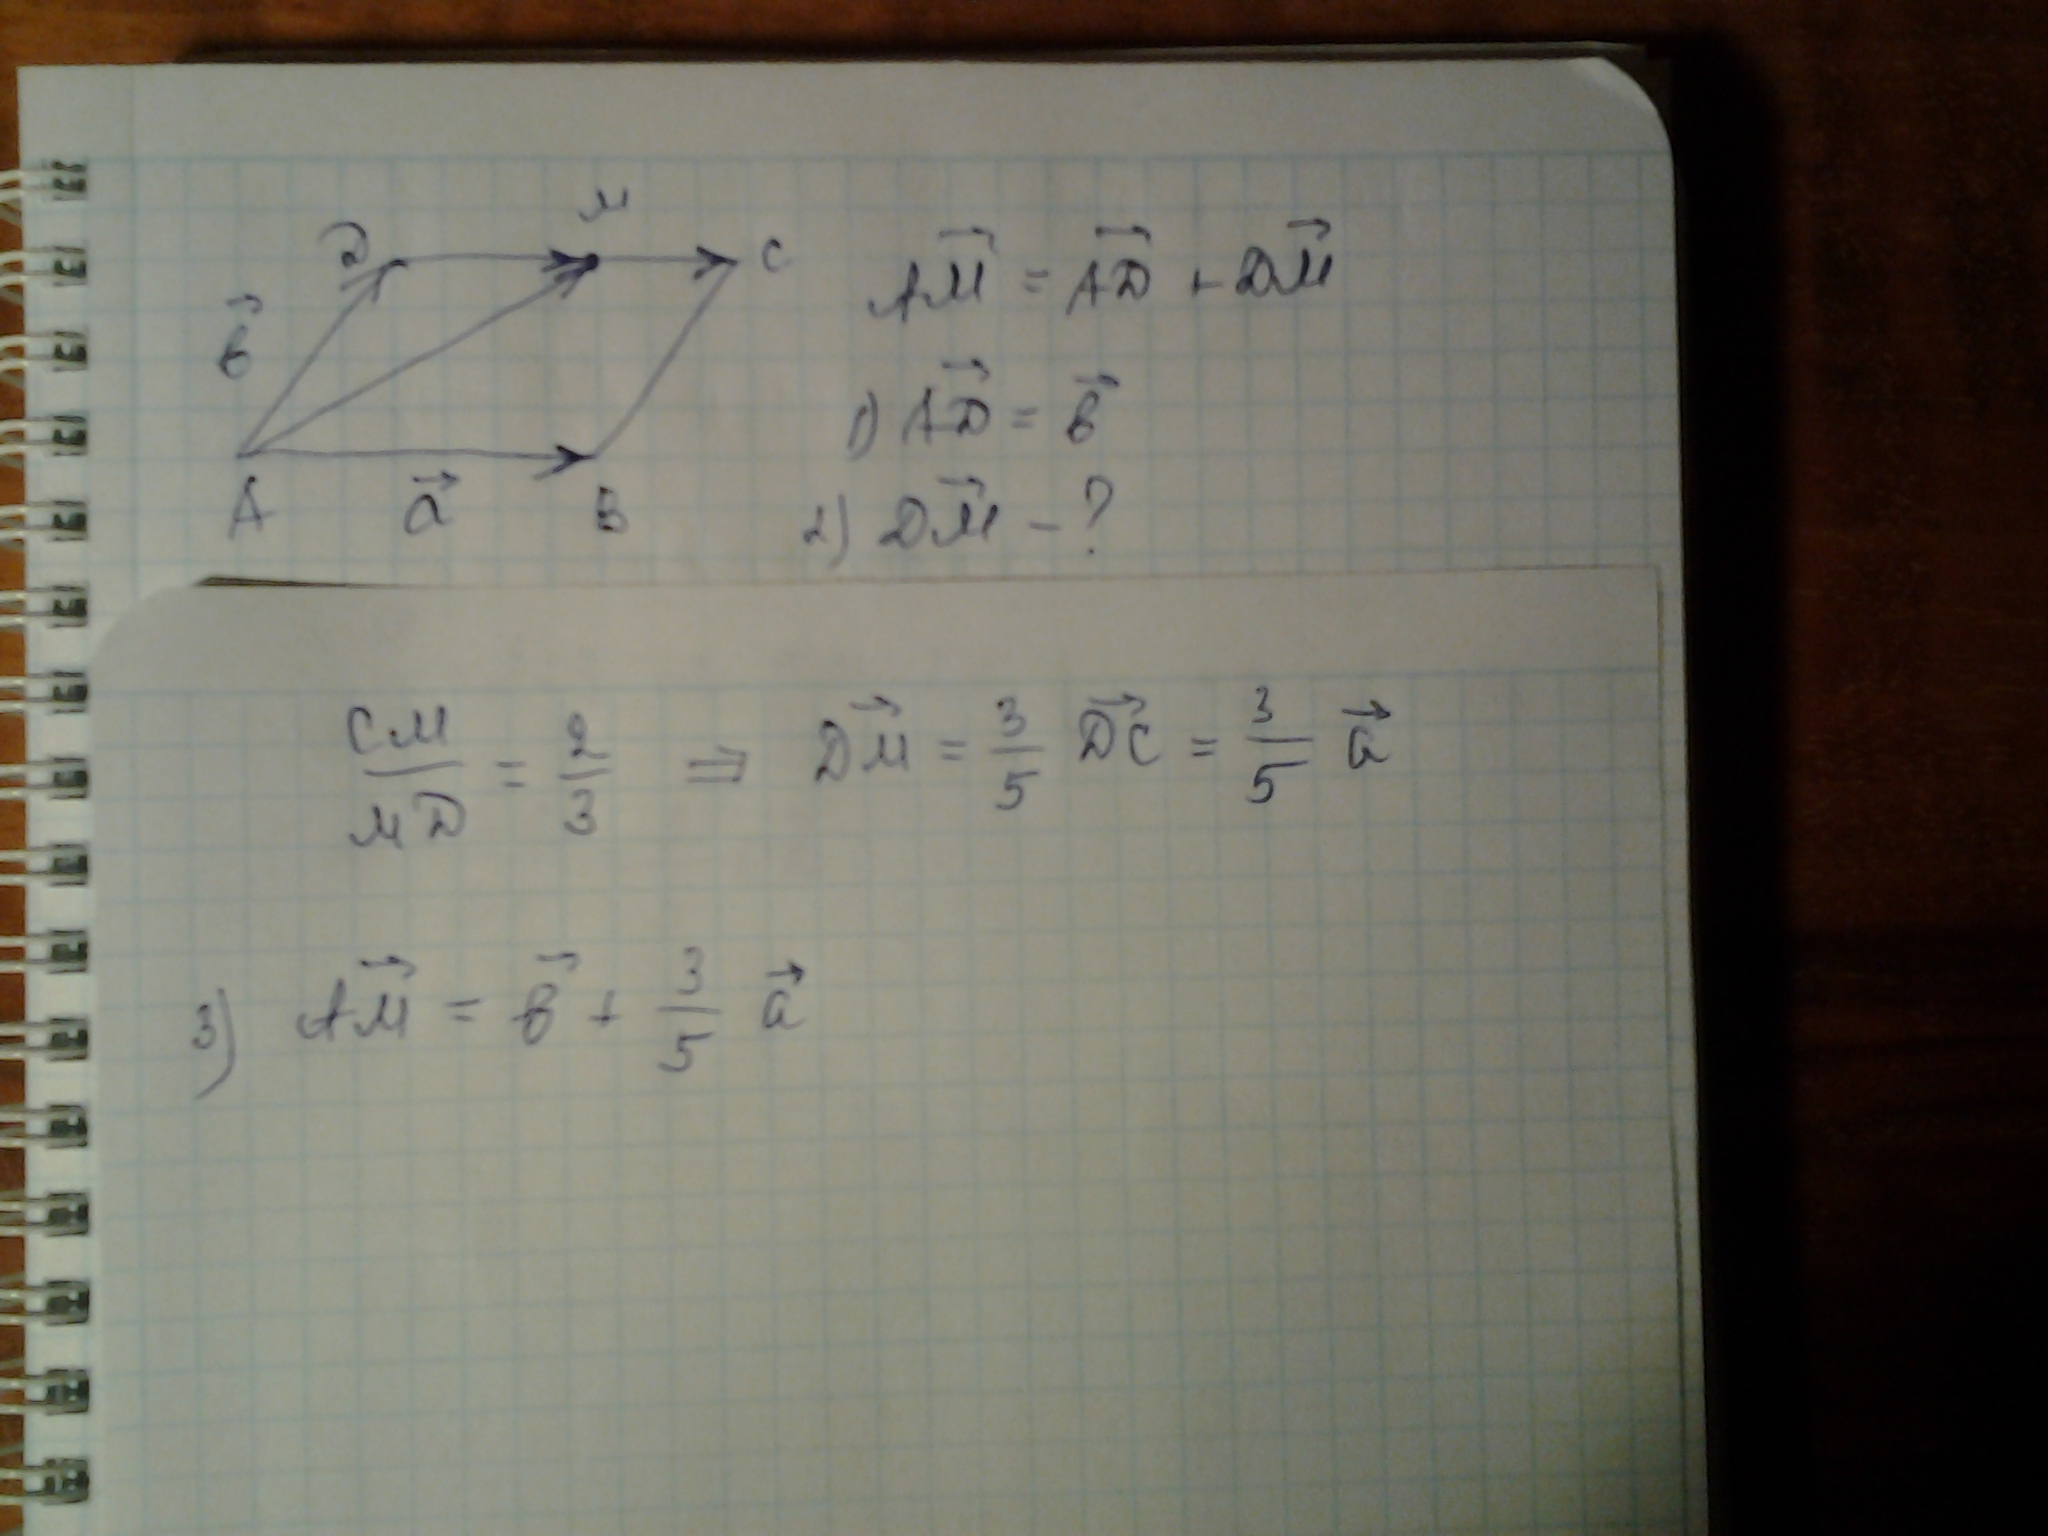 D M C
b⃗
A a⃗ B
AM⃗ = AD⃗ + DM⃗
1) AD⃗ = b⃗
2) DM⃗ - ?
CM/MD = 2/3 ⇒ DM⃗ = 3/5 DC⃗ = 3/5 a⃗
3) AM⃗ = b⃗ + 3/5 a⃗